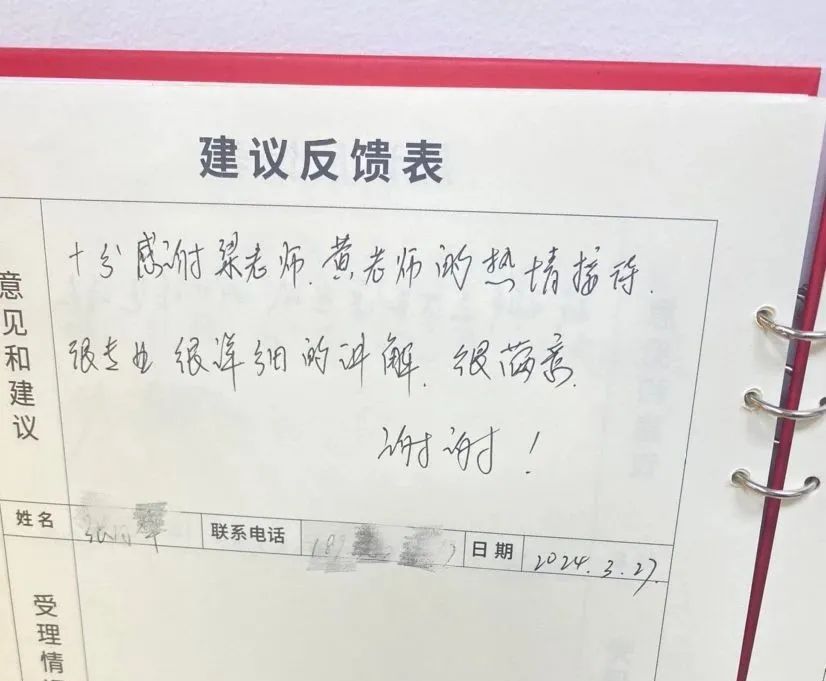 建议反馈表
意见和建议
十分感谢梁老师.黄老师的热情接待.
很专业 很详细的讲解. 很满意.
谢谢!
姓名
联系电话
日期 2024.3.27.
受理情